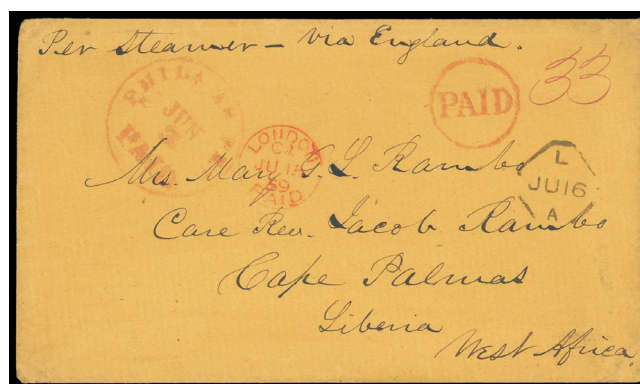 Per Steamer - via England.
PAID
33
JUN
PAID
LONDON
JU 14
59
PAID
L
JU16
A
Mrs. Mary G. L. Rambo
Care Rev. Jacob Rambo
Cape Palmas
Liberia
West Africa.